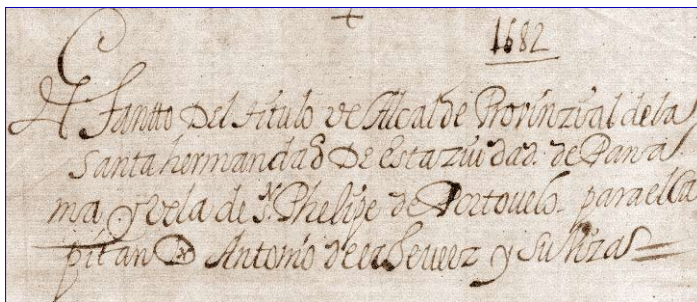 1682
Santto Del titulo de Alcalde Provinzial de la
Santa hermandad De esta ziudad. de Pana
ma, y vela de S. Phelipe de Portovelo. para el Ca
pitan Dn Antonio de echeverz y suvizas